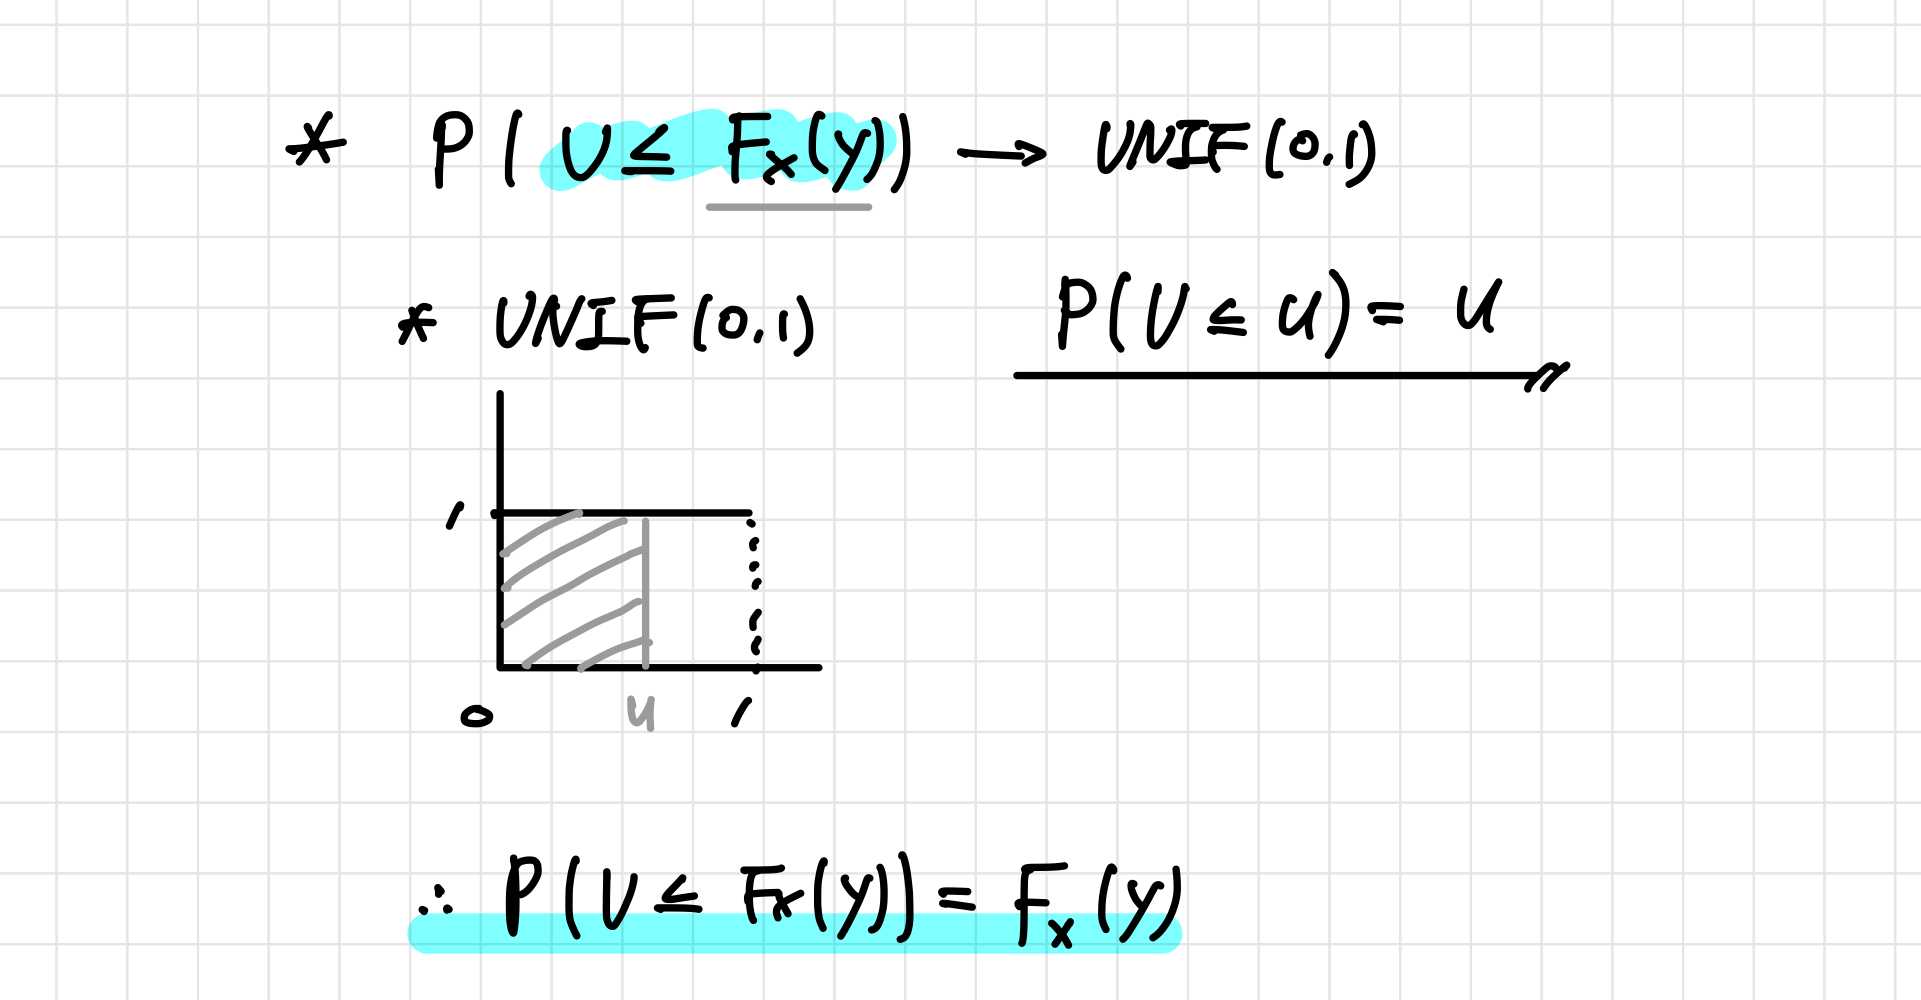 * P(U ≤ Fx(y)) → UNIF(0,1)
* UNIF(0,1)
P(U ≤ u) = u
1
0 u 1
∴ P(U ≤ Fx(y)) = Fx(y)